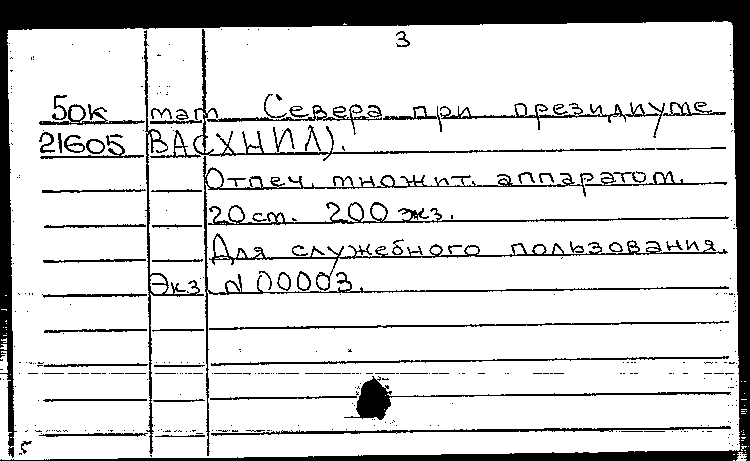 3
50к мат Севера при президиуме
21605 ВАСХНИЛ).
Отпеч. множит. аппаратом.
20 ст. 200 экз.
Для служебного пользования.
Экз N 00003.
5